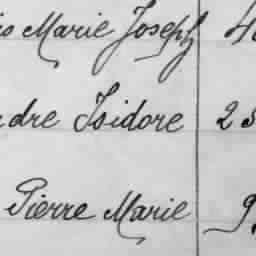 Marie Joseph
Isidore 2
Pierre Marie 9